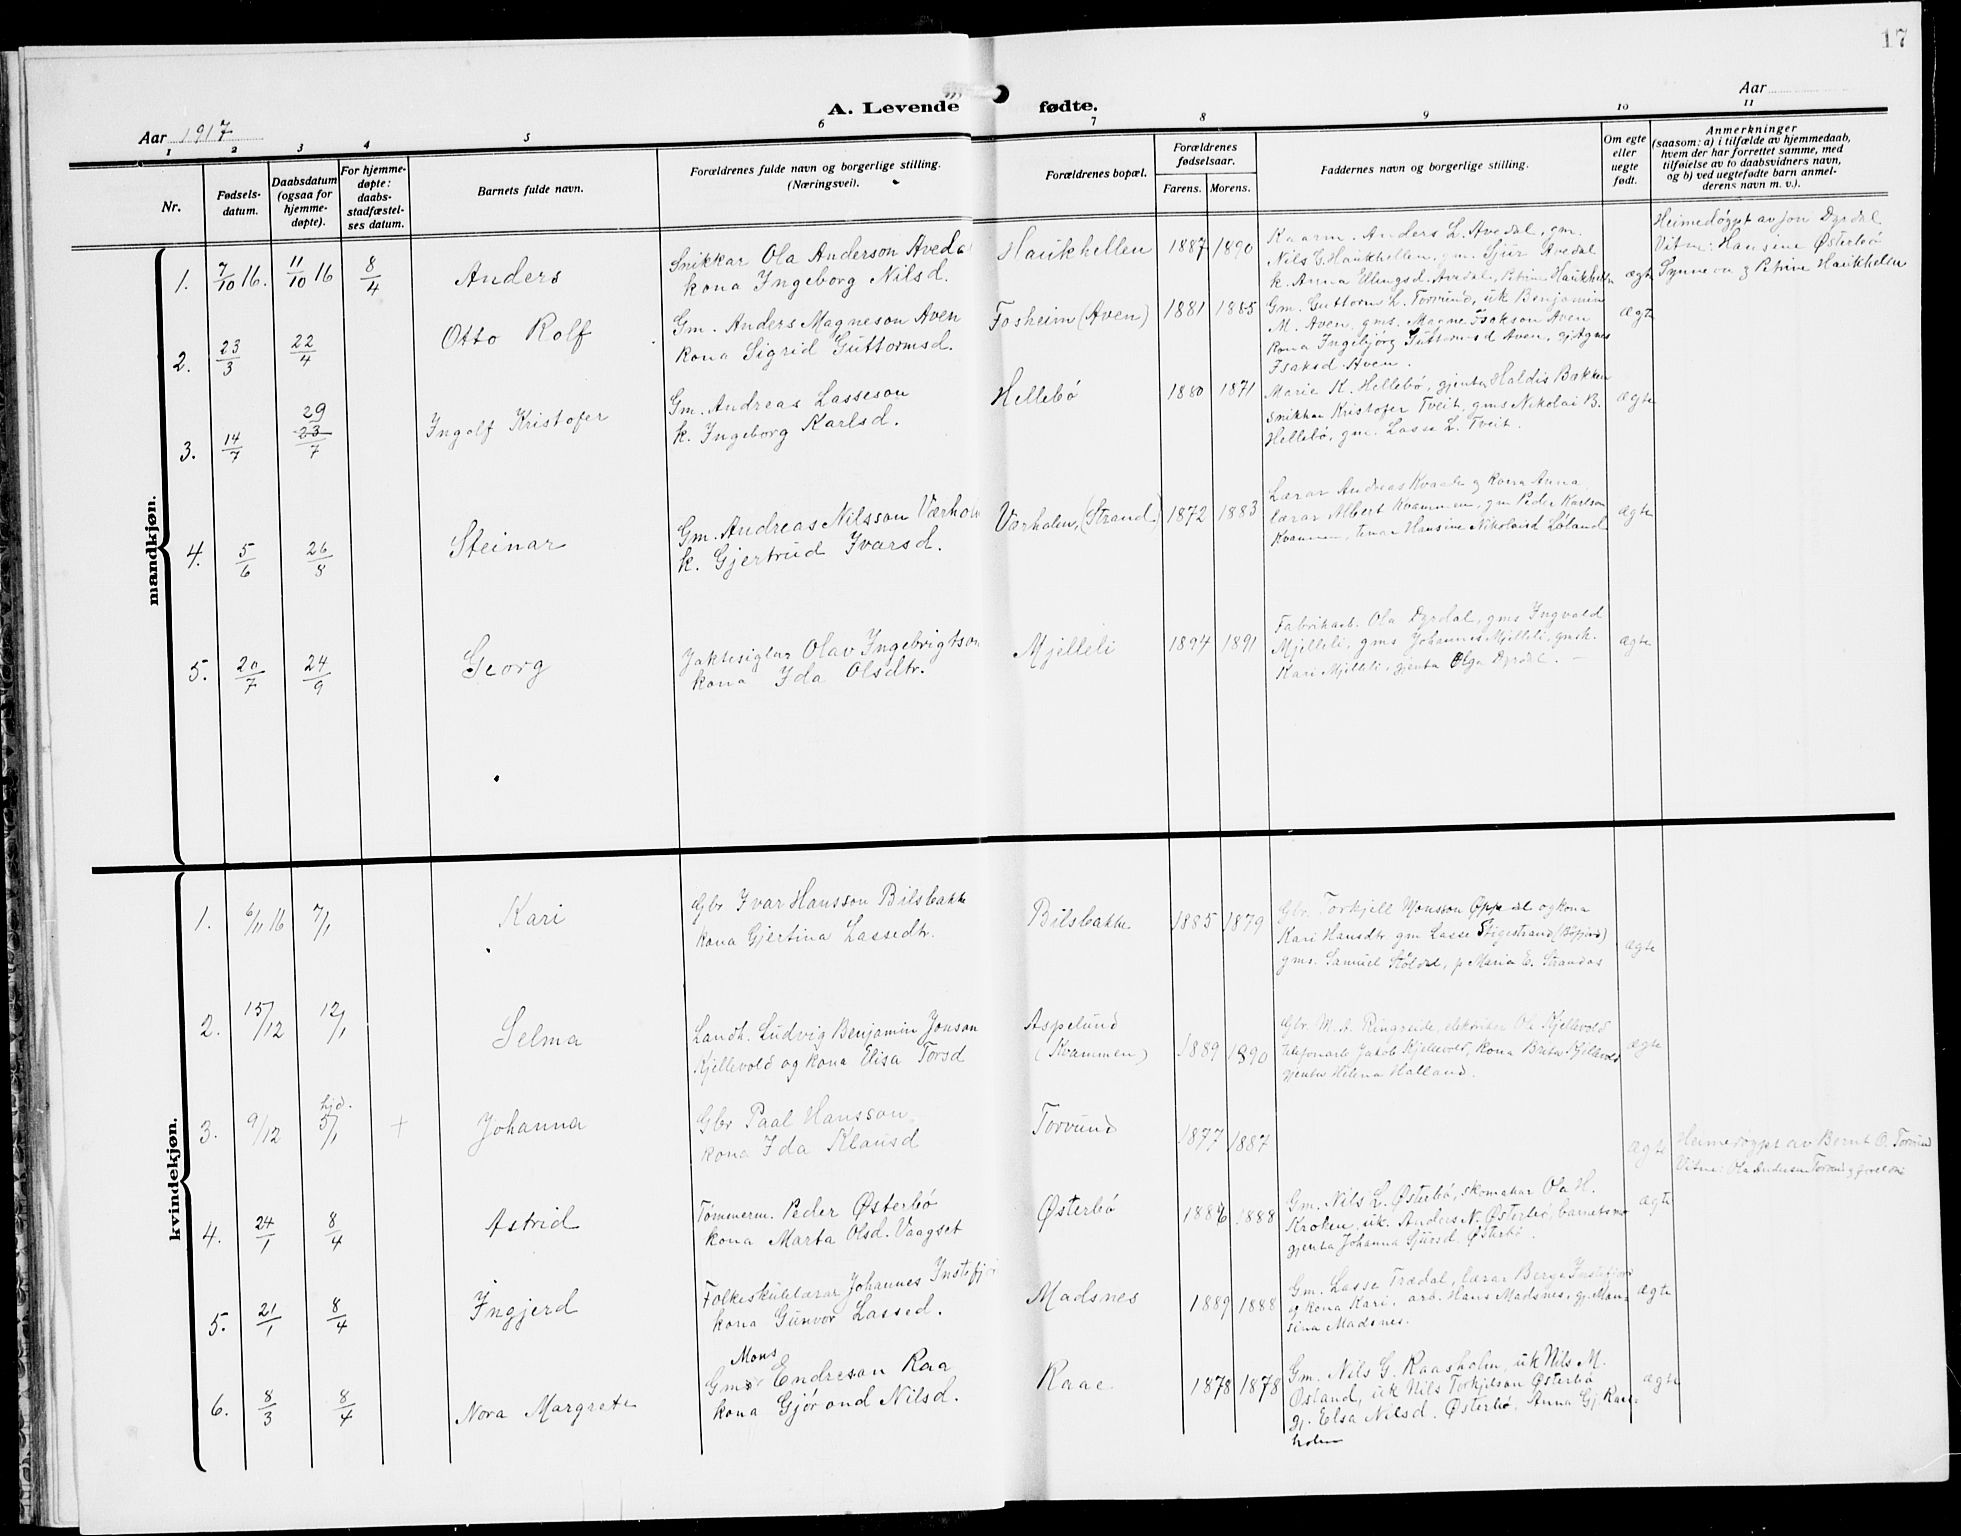 17
A. Levende fødte.
Aar 1917
Aar
1 2 3 4 5 6 7 8 9 10 11
Nr.
Fødsels-
datum.
Daabsdatum
(ogsaa for
hjemme-
døpte).
For hjemme-
døpte:
daabs-
stadfæstel-
ses datum.
Barnets fulde navn.
Forældrenes fulde navn og borgerlige stilling.
(Næringsvei).
Forældrenes bopæl.
Forældrenes
fødselsaar.
Farens. Morens.
Faddernes navn og borgerlige stilling.
Om egte
eller
uegte
født.
Anmerkninger
(saasom: a) i tilfælde av hjemmedaab,
hvem der har forrettet samme, med
tilføielse av to daabsvidners navn,
og b) ved uegtefødte barn anmel-
derens navn m. v.).
mandkjøn.
1. 7/10 16. 11/10 16 8/4 Anders
Snikkar Ola Anderson Avedal
kona Ingeborg Nilsd.
Haukhellen 1887 1890
Kaarm. Anders L. Avedal, gm.
Nils G. Haukhellen, gm. Sjur Avedal
k. Anna Ellingsd. Avedal, Petrine Haukhelln
ægte
Heimedøypt av Jon Dyrdal
Vitne: Hansine Østerbø
Synneva og Petrine Haukhellen
2. 23/3 22/4 Otto Rolf
Gm. Anders Magneson Aven
kona Sigrid Guttormsd.
Fosheim (Aven) 1881 1885
Gm. Guttorm L. Torvund, uk Benjamin
M. Aven, gms. Magne Isakson Aven
kona Ingebjørg Guttormsd Aven, gj. Agnes
Isaksd. Aven.
ægte
3. 14/7 29 23/7 Ingolf Kristofer
Gm. Andreas Lasseson
k. Ingeborg Karlsd.
Hellebø 1880 1871
Marie K. Hellebø, gjenta Haldis Bakken
Snikkar Kristofer Tveit, gms Nikolai B.
Hellebø, gm. Lasse L. Tveit.
ægte
4. 5/6 26/8 Steinar
Gm. Andreas Nilsson Værholm
k. Gjertrud Ivarsd.
Værholm, (Strand) 1872 1883
Lærar Andreas Kvaale og kona Anna,
lærar Albert Kvammen, gm Peder Karlson
Kvammen, tena Hansine Nikolaisd Løland
ægte
5. 20/7 24/9 Georg
Jaktesiglar Olav Ingebrigtson
kona Ida Olsdtr.
Mjelleli 1894 1891
Fabrikarb. Ola Dyrdal, gms Ingvald
Mjelleli, gms Johannes Mjelleli, gmsk.
Kari Mjelleli, gjenta Olga Dyrdal. —
ægte
kvindekjøn.
1. 6/11 16 7/1 Kari
Gbr Ivar Hansson Bilsbakke
kona Gjertina Lassedtr.
Bilsbakke 1885 1879
Gbr. Torkjell Monsson Oppdal og kona
Kari Hansdtr gm Lasse Stigestrand
gms. Samuel Stöldal, p Maria E. Strandos
ægte
2. 15/12 12/1 Selma
Landh. Ludvig Benjamin Jonson
Kjellevold og kona Elisa Torsd
Aspelund
(Kvammen) 1889 1890
Gbr. M. A. Ringreide, elektriker Ola Kjellevold
telefonarb Jakob Kjellevold, kona Brita Kjellevold
gjenta Helena Halland.
ægte
3. 9/12 hjd. 5/1 + Johanna
Gbr Paal Hansson
kona Ida Klausd
Torvund 1877 1887
ægte
Heimedøypt av Bernt O. Torvund
Vitne: Ola Anderson Torvund og foreldre
4. 24/1 8/4 Astrid
Tømmerm. Peder Østerbø
kona Marta Olsd. Vaagset
Østerbø 1886 1888
Gm. Nils L. Østerbø, skomakar Ola H.
Kroken, uk. Anders N. Østerbø, barnets mor
gjenta Johanna Sjursd. Østerbø.
ægte
5. 21/1 8/4 Ingjerd
Folkeskulelærar Johannes Instefjor
kona Gunvor Lassed.
Madsnes 1889 1888
Gm. Lasse Trædal, lærar Berge Instefjord
og kona Kari, arb. Hans Madsnes, gj. Man-
sina Madsnes.
ægte
6. 8/3 8/4 Nora Margrete
Mons
Gm Endreson Raa
kona Gjørond Nilsd.
Raae 1878 1878
Gm. Nils G. Raasholm, uk Nils M.
Østland, uk Nils Torkjelson Østerbø
gj. Elsa Nilsd. Østerbø, Anna Gj. Raas-
holm
ægte